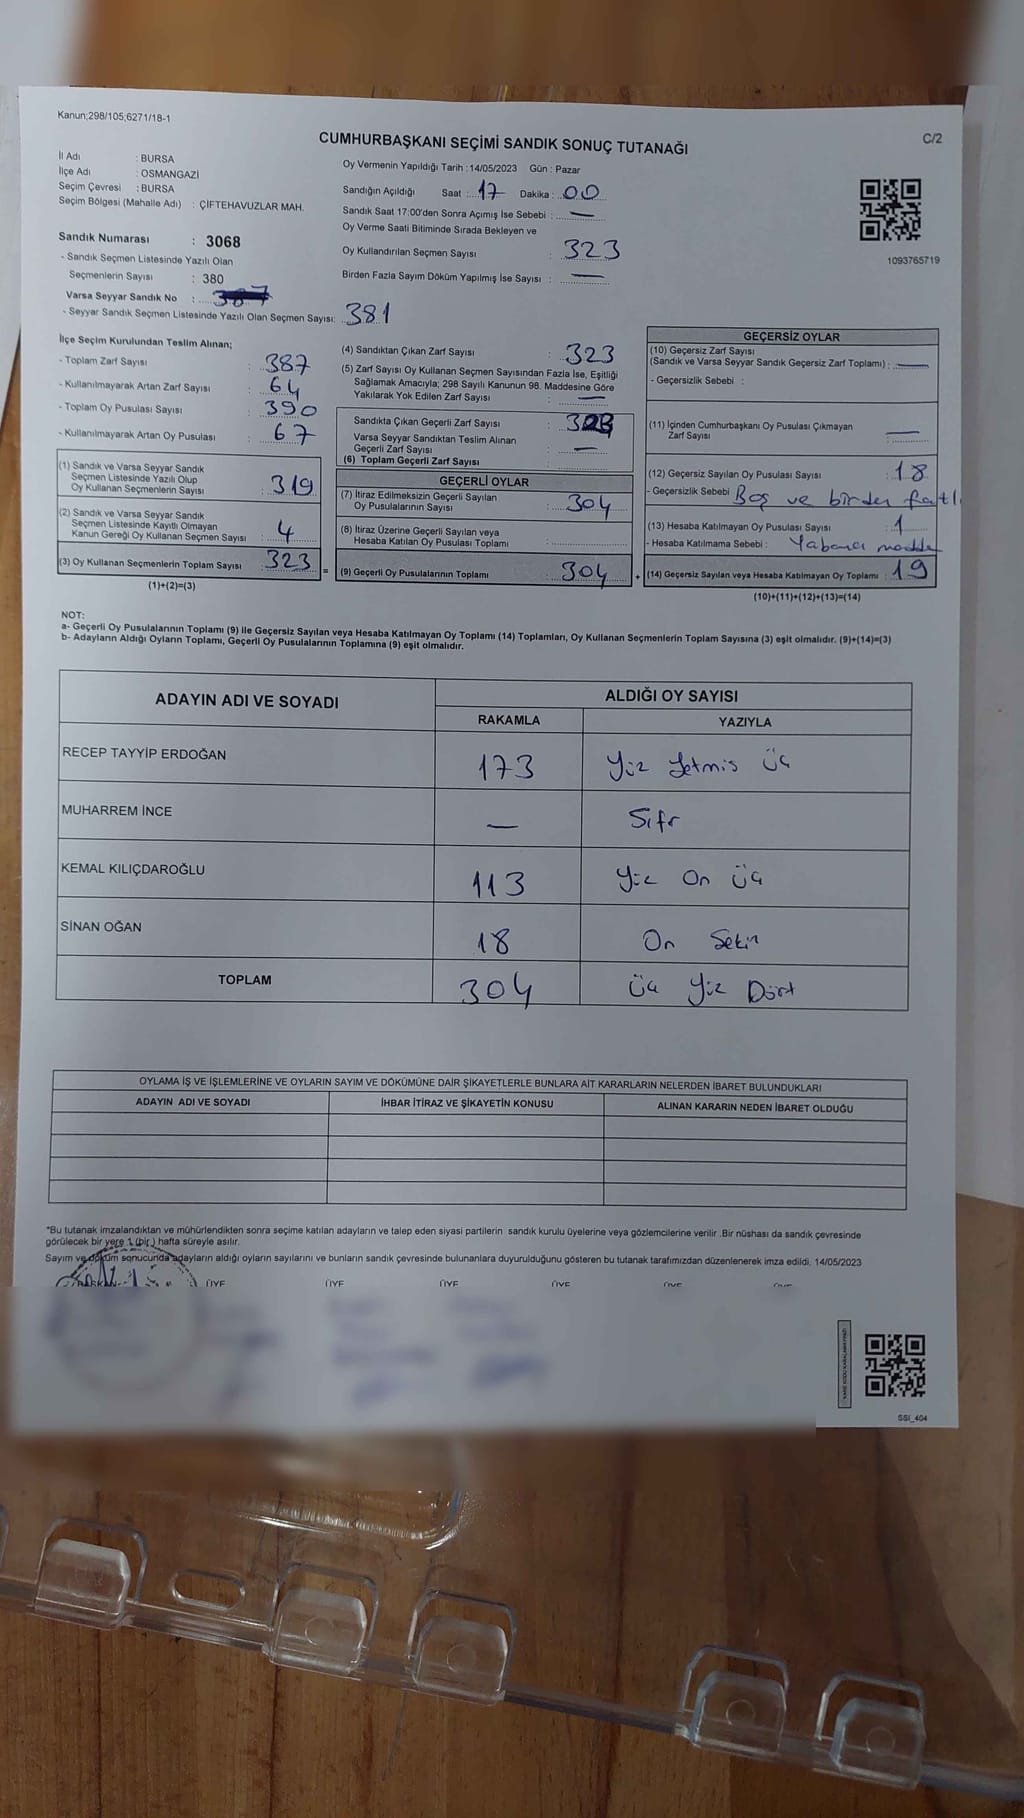 Kanun;298/105;6271/18-1
C/2
CUMHURBAŞKANI SEÇİMİ SANDIK SONUÇ TUTANAĞI
İl Adı : BURSA
İlçe Adı : OSMANGAZİ
Seçim Çevresi : BURSA
Seçim Bölgesi (Mahalle Adı) : ÇİFTEHAVUZLAR MAH.
Sandık Numarası : 3068
- Sandık Seçmen Listesinde Yazılı Olan
Seçmenlerin Sayısı : 380
Varsa Seyyar Sandık No :
- Seyyar Sandık Seçmen Listesinde Yazılı Olan Seçmen Sayısı: 381
Oy Vermenin Yapıldığı Tarih :14/05/2023 Gün : Pazar
Sandığın Açıldığı Saat : 17 Dakika : 00
Sandık Saat 17:00'den Sonra Açımış İse Sebebi : —
Oy Verme Saati Bitiminde Sırada Bekleyen ve
Oy Kullandırılan Seçmen Sayısı : 323
Birden Fazla Sayım Döküm Yapılmış İse Sayısı : —
1093765719
İlçe Seçim Kurulundan Teslim Alınan;
- Toplam Zarf Sayısı : 387
- Kullanılmayarak Artan Zarf Sayısı : 64
- Toplam Oy Pusulası Sayısı : 390
- Kullanılmayarak Artan Oy Pusulası : 67
(1) Sandık ve Varsa Seyyar Sandık
Seçmen Listesinde Yazılı Olup
Oy Kullanan Seçmenlerin Sayısı : 319
(2) Sandık ve Varsa Seyyar Sandık
Seçmen Listesinde Kayıtlı Olmayan
Kanun Gereği Oy Kullanan Seçmen Sayısı : 4
(3) Oy Kullanan Seçmenlerin Toplam Sayısı : 323
(1)+(2)=(3)
(4) Sandıktan Çıkan Zarf Sayısı : 323
(5) Zarf Sayısı Oy Kullanan Seçmen Sayısından Fazla İse, Eşitliği
Sağlamak Amacıyla; 298 Sayılı Kanunun 98. Maddesine Göre
Yakılarak Yok Edilen Zarf Sayısı : —
Sandıkta Çıkan Geçerli Zarf Sayısı : 323
Varsa Seyyar Sandıktan Teslim Alınan
Geçerli Zarf Sayısı : —
(6) Toplam Geçerli Zarf Sayısı :
GEÇERLİ OYLAR
(7) İtiraz Edilmeksizin Geçerli Sayılan
Oy Pusulalarının Sayısı : 304
(8) İtiraz Üzerine Geçerli Sayılan veya
Hesaba Katılan Oy Pusulası Toplamı :
= (9) Geçerli Oy Pusulalarının Toplamı : 304 +
GEÇERSİZ OYLAR
(10) Geçersiz Zarf Sayısı
(Sandık ve Varsa Seyyar Sandık Geçersiz Zarf Toplamı) : —
- Geçersizlik Sebebi :
(11) İçinden Cumhurbaşkanı Oy Pusulası Çıkmayan
Zarf Sayısı : —
(12) Geçersiz Sayılan Oy Pusulası Sayısı : 18
- Geçersizlik Sebebi : Boş ve birden
(13) Hesaba Katılmayan Oy Pusulası Sayısı : 1
- Hesaba Katılmama Sebebi : Yabancı madde
(14) Geçersiz Sayılan veya Hesaba Katılmayan Oy Toplamı : 19
(10)+(11)+(12)+(13)=(14)
NOT:
a- Geçerli Oy Pusulalarının Toplamı (9) ile Geçersiz Sayılan veya Hesaba Katılmayan Oy Toplamı (14) Toplamları, Oy Kullanan Seçmenlerin Toplam Sayısına (3) eşit olmalıdır. (9)+(14)=(3)
b- Adayların Aldığı Oyların Toplamı, Geçerli Oy Pusulalarının Toplamına (9) eşit olmalıdır.
ADAYIN ADI VE SOYADI ALDIĞI OY SAYISI
RAKAMLA YAZIYLA
RECEP TAYYİP ERDOĞAN 173 Yüz Yetmiş Üç
MUHARREM İNCE — Sıfır
KEMAL KILIÇDAROĞLU 113 Yüz On Üç
SİNAN OĞAN 18 On Sekiz
TOPLAM 304 Üç Yüz Dört
OYLAMA İŞ VE İŞLEMLERİNE VE OYLARIN SAYIM VE DÖKÜMÜNE DAİR ŞİKAYETLERLE BUNLARA AİT KARARLARIN NELERDEN İBARET BULUNDUKLARI
ADAYIN ADI VE SOYADI İHBAR İTİRAZ VE ŞİKAYETİN KONUSU ALINAN KARARIN NEDEN İBARET OLDUĞU
*Bu tutanak imzalandıktan ve mühürlendikten sonra seçime katılan adayların ve talep eden siyasi partilerin sandık kurulu üyelerine veya gözlemcilerine verilir .Bir nüshası da sandık çevresinde
görülecek bir yere 1 (bir ) hafta süreyle asılır.
Sayım ve döküm sonucunda adayların aldığı oyların sayılarını ve bunların sandık çevresinde bulunanlara duyurulduğunu gösteren bu tutanak tarafımızdan düzenlenerek imza edildi. 14/05/2023
BAŞKAN ÜYE ÜYE ÜYE ÜYE ÜYE
SSI_404